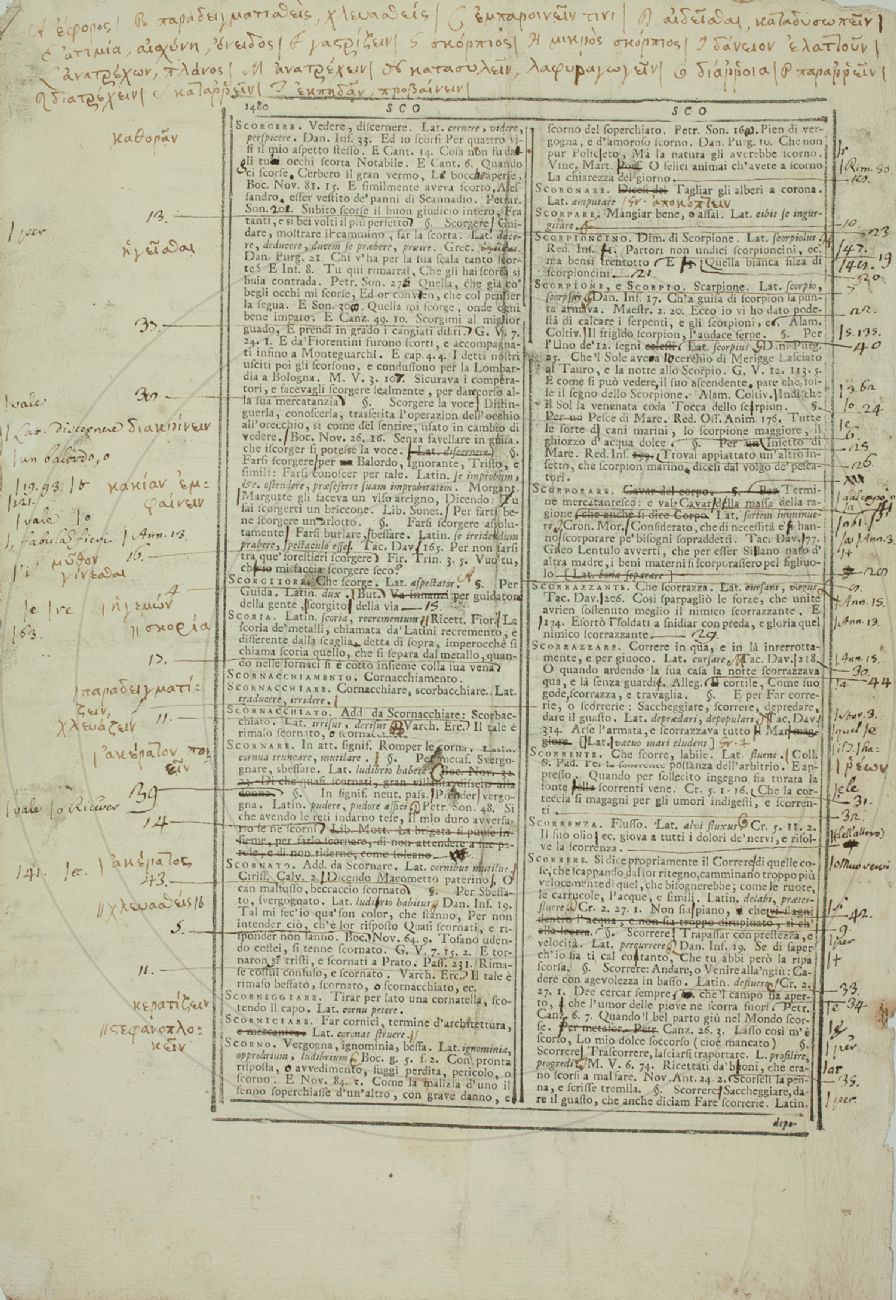 ἔφορος| B παραδειγματισθεὶς, χλευασθείς| C ἐμπαροινεῖν τινι| D αἰδεῖσθαι, καταδυσωπεῖν|
ἀτιμία, αἰσχύνη, ὄνειδος| F γαστρίζειν| G σκόρπιος| H μικρὸς σκόρπιος| I δάνειον ἐλαττοῦν|
ἀνατρέχων, πλάνος| M ἀνατρέχειν| N κατασυλεῖν, λαφυραγωγεῖν| O διάρροια| P παραρρεῖν|
Q διατρέχειν| καταρρεῖν| ἐκπηδᾶν, προβαίνειν|
1480 SCO SCO
καθορᾶν
13.
| per
ἡγεῖσθαι
33.
30.
| vale
| Lat. discernere διακρίνειν
| un balordo, o
κακίαν ἐμ-
φαίνειν
| vale
| Ann. 13.
16.
μῦθον
γίνεσθαι
ἡγεμών
σκορία
17.
| παραδειγματί-
ζειν,
χλευάζειν
11.
ἀκέρατον ποι-
εῖν
39
14.
| ἀκέρατος
43.
χλευασθείς
5.
11.
κερατίζειν
στεφανοπλο-
κεῖν
SCORGERE. Vedere, discernere. Lat. cernere, videre,
perspicere. Dan. Inf. 33. Ed io scorsi Per quattro vi-
si il mio aspetto stesso. E Cant. 14. Cosa non fu da
gli tuoi occhi scorta Notabile. E Cant. 6. Quando
ci scorse, Cerbero il gran vermo, Le bocche aperse.
Boc. Nov. 81. 15. E similmente aveva scorto, Ales-
sandro, esser vestito de' panni di Scannadio. Petrar.
Son. 201. Subito scorse il buon giudicio intero, Fra
tanti, e sì bei volti il più perfetto. §. Scorgere, Gui-
dare, mostrare il cammino, far la scorta. Lat. duce-
re, deducere, ducem se præbere, præire. Grec.
Dan. Purg. 21. Chi v'ha per la sua scala tanto scor-
te? E Inf. 8. Tu qui rimarrai, Che gli hai scorta sì
buia contrada. Petr. Son. 276. Quella, che già co'
begli occhi mi scorse, Ed or convien, che col pensier
la segua. E Son. 306. Quella mi scorge, onde ogni
bene imparo. E Canz. 49. 10. Scorgimi al miglior
guado, E prendi in grado i cangiati disiri. G. V. 7.
24. 1. E da' Fiorentini furono scorti, e accompagna-
ti infino a Monteguarchi. E cap. 4. 4. I detti nostri
usciti poi gli scorsono, e condussono per la Lombar-
dia a Bologna. M. V. 3. 107. Sicurava i compera-
tori, e facevagli scorgere lealmente, per dar corso al-
la sua mercatanzia. §. Scorgere la voce, Distin-
guerla, conoscerla, trasferita l'operazion dell'occhio
all'orecchio, sì come del sentire, usato in cambio di
vedere. Boc. Nov. 26. 16. Senza favellare in guisa,
che iscorger si potesse la voce. [Lat. discernere] §.
Farsi scorgere per un Balordo, Ignorante, Tristo, e
simili: Farsi conoscer per tale. Latin. se improbum,
&c. ostendere, præseferre suam improbitatem. Morgant.
Margutte gli faceva un viso arcigno, Dicendo: Tu
fai scorgerti un briccone. Lib. Sonet. Per farti be-
ne scorgere un arlotto. §. Farsi scorgere assolu-
tamente, Farsi burlare, sbeffare. Lat. se irridendum
præbere, spectaculo esse. Tac. Dav. 165. Per non farsi
tra que' forestieri scorgere. Fir. Trin. 3. 5. Vuo' tu,
che io mi faccia scorgere seco?
SCORGITORE. Che scorge. Lat. aspectator. §. Per
Guida. Latin. dux. But. Va innanzi per guidatore
della gente, scorgitor della via 15.
SCORIA. Latin. scoria, recrementum. Ricett. Fior. La
scoria de' metalli, chiamata da' Latini recremento, è
differente dalla scaglia, detta di sopra, imperocchè si
chiama scoria quello, che si separa dal metallo, quan-
do nelle fornaci si è cotto insieme colla sua vena.
SCORNACCHIAMENTO. Cornacchiamento.
SCORNACCHIARE. Cornacchiare, scorbacchiare. Lat.
traducere, irridere.
SCORNACCHIATO. Add. da Scornacchiare: Scorbac-
chiato. Lat. irrisus, derisus. Varch. Erc. Il tale è
rimaso scornato, o scornacchiato.
SCORNARE. In att. signif. Romper le corna. Latin.
cornua truncare, mutilare. §. Per metaf. Svergo-
gnare, sbeffare. Lat. ludibrio habere. Boc. Nov. 32.
22. Di che quasi scornati, gran villania dissero alla
donna. §. In signif. neut. pass. Prender vergo-
gna. Latin. pudere, pudore affici. Petr. Son. 48. Sì
che avendo le reti indarno tese, Il mio duro avversa-
rio se ne scorni. Lib. Mott. La brigata si puose in-
sieme, per farlo scornare, di non attendere a sue pa-
role, e di non riderne, come soleano.
SCORNATO. Add. da Scornare. Lat. cornibus mutilus.
Ciriff. Calv. 2. Dicendo Macometto paterino, O
can malfusso, beccaccio scornato. §. Per Sbeffa-
to, svergognato. Latin. ludibrio habitus. Dan. Inf. 19.
Tal mi fec'io qua' son color, che stanno, Per non
intender ciò, ch'è lor risposto Quasi scornati, e ri-
sponder non sanno. Boc. Nov. 64. 9. Tofano uden-
do costei, si tenne scornato. G. V. 7. 15. 2. E tor-
naron si tristi, e scornati a Prato. Pass. 231. Rima-
se costui confuso, e scornato. Varch. Erc. Il tale è
rimaso beffato, scornato, o scornacchiato, ec.
SCORNEGGIARE. Tirar per lato una cornatella, sco-
tendo il capo. Lat. cornu petere.
SCORNICIARE. Far cornici, termine d'architettura,
e meccanica. Lat. coronas struere.
SCORNO. Vergogna, ignominia, beffa. Lat. ignominia,
opprobrium, ludibrium. Boc. g. 5. f. 2. Con pronta
risposta, o avvedimento, fuggi perdita, pericolo, o
scorno. E Nov. 84. 1. Come la malizia d'uno il
senno soperchiasse d'un'altro, con grave danno, e
scorno del soperchiato. Petr. Son. 160. Pien di ver-
gogna, e d'amoroso scorno. Dan. Purg. 10. Che non
pur Policleto, Ma la natura gli averebbe scorno.
Vinc. Mart. Poet. O felici animai ch'avete a scorno
La chiarezza del giorno.
SCORONARE. Dicesi del Tagliar gli alberi a corona.
Lat. amputare. | Gr. ἀποκόπτειν
SCORPARE. Mangiar bene, o assai. Lat. cibis se ingur-
gitare.
SCORPIONCINO. Dim. di Scorpione. Lat. scorpiolus.
Red. Ins. Partorì non undici scorpioncini, ec.
ma bensì trentotto. E Quella bianca filza di
scorpioncini. 21.
SCORPIONE, e SCORPIO. Scarpione. Lat. scorpio,
scorpius. Dan. Inf. 17. Ch'a guisa di scorpion la pun-
ta armava. Maestr. 2. 20. Ecco io vi ho dato pode-
stà di calcare i serpenti, e gli scorpioni, ec. Alam.
Coltiv. Il frigido scorpion, l'audace serpe. §. Per
l'Uno de' 12. segni celesti. Lat. scorpius. Dan. Purg.
25. Che 'l Sole avea lo cerchio di Merigge Lasciato
al Tauro, e la notte allo Scorpio. G. V. 12. 113. 5.
E come si può vedere, il suo ascendente, pare che, tol-
se il segno dello Scorpione. Alam. Coltiv. Indi che
il Sol la venenata coda Tocca dello scorpion. §.
Per un Pesce di Mare. Red. Oss. Anim. 176. Tutte
le sorte di cani marini, lo scorpione maggiore, il
ghiozzo d'acqua dolce. §. Per un Insetto di
Mare. Red. Ins. Trovai appiattato un'altro in-
setto, che scorpion marino, dicesi dal volgo de' pesca-
tori.
SCORPORARE. Cavar del corpo. §. Per Termi-
ne mercatantesco: e val Cavar della massa della ra-
gione che anche si dice Corpo. Lat. sortem imminue-
re. Cron. Mor. Considerato, che di necessità e' si han-
no scorporare pe' bisogni sopraddetti. Tac. Dav. 77.
Gneo Lentulo avvertì, che per esser Silano nato d'
altra madre, i beni materni si scorporassero pel figliuo-
lo. [Lat. bona separare]
SCORRAZZANTE. Che scorrazza. Lat. cursans, vagus.
Tac. Dav. 206. Così sparpagliò le forze, che unite
avrien sostenuto meglio il nimico scorrazzante. E
174. Esortò i soldati a snidiar con preda, e gloria quel
nimico scorrazzante. 29.
SCORRAZZARE. Correre in qua, e in là interrotta-
mente, e per giuoco. Lat. cursare. Tac. Dav. 218.
O quando ardendo la sua casa la notte scorrazzava
qua, e là senza guardia. Alleg. E cortile. Come suo
gode, scorrazza, e travaglia. §. E per Far corre-
rie, o scorrerie: Saccheggiare, scorrere, depredare,
dare il guasto. Lat. deprædari, depopulari. Tac. Dav.
314. Arse l'armata, e scorrazzava tutto il Mar mag-
giore. [Lat. vacuo mari eludens]
SCORRENTE. Che scorre, labile. Lat. fluens. Coll.
S. Pad. Per la scorrente possanza dell'arbitrio. E ap-
presso. Quando per sollecito ingegno sia turata la
fonte, della scorrenti vene. Cr. 5. 1. 16. Che la cor-
teccia si magagni per gli umori indigesti, e scorren-
ti.
SCORRENZA. Flusso. Lat. alvi fluxus. Cr. 5. 11. 2.
Il suo olio, ec. giova a tutti i dolori de' nervi, e risol-
ve la scorrenza.
SCORRERE. Si dice propriamente il Correre di quelle co-
se, che scappando dal lor ritegno, camminano troppo più
velocemente di quel, che bisognerebbe; come le ruote,
le carrucole, l'acque, e simili. Latin. delabi, præter-
fluere. Cr. 2. 27. 1. Non sia piano, e che vi stagni
dentro l'acqua, e non sia troppo dirupinato, sì ch'
ella scorra. §. Scorrere: Trapassar con prestezza, e
velocità. Lat. percurrere. Dan. Inf. 19. Se di saper
ch'io sia ti cal cotanto, Che tu abbi però la ripa
scorsa. §. Scorrere: Andare, o Venire all'ingiù: Ca-
dere con agevolezza in basso. Latin. defluere. Cr. 2.
27. 1. Dee cercar sempre, che 'l campo sia aper-
to, che l'umor delle piove ne scorra fuori. Petr.
Canz. 6. 7. Quando 'l bel parto giù nel Mondo scor-
se. Per metafor. Petr. Canz. 26. 3. Lasso così m'è
scorso, Lo mio dolce soccorso (cioè mancato) §.
Scorrere, Trascorrere, lasciarsi traportare. L. prosilire,
progredi. M. V. 6. 74. Ricettati da' buoni, che era-
no scorsi a mal fare. Nov. Ant. 24. 2. Scorseli la pen-
na, e scrisse tremila. §. Scorrere, Saccheggiare, da-
re il guasto, che anche diciam Fare scorrerie. Latin.
depo-
10.
23
147.
22.
40
24
25
26.
| Ann. 15.
| Ann. 13.
30.
44
ῥέων
31.
32.
42.
9.
| per
33.
34
| per
35.
| per